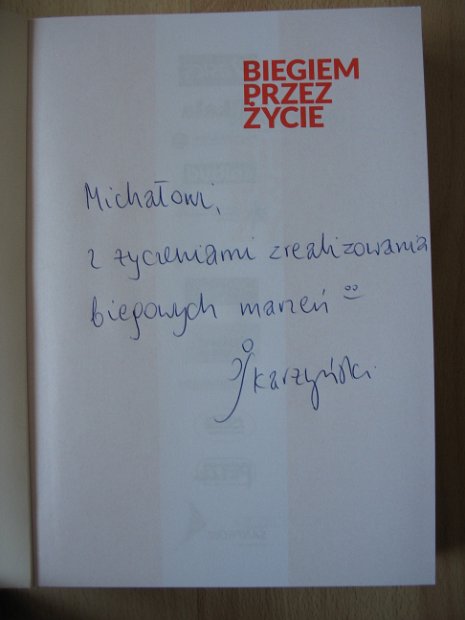 BIEGIEM
PRZEZ
ŻYCIE
Michałowi,
z życzeniami zrealizowania
biegowych marzeń
Skarżyński